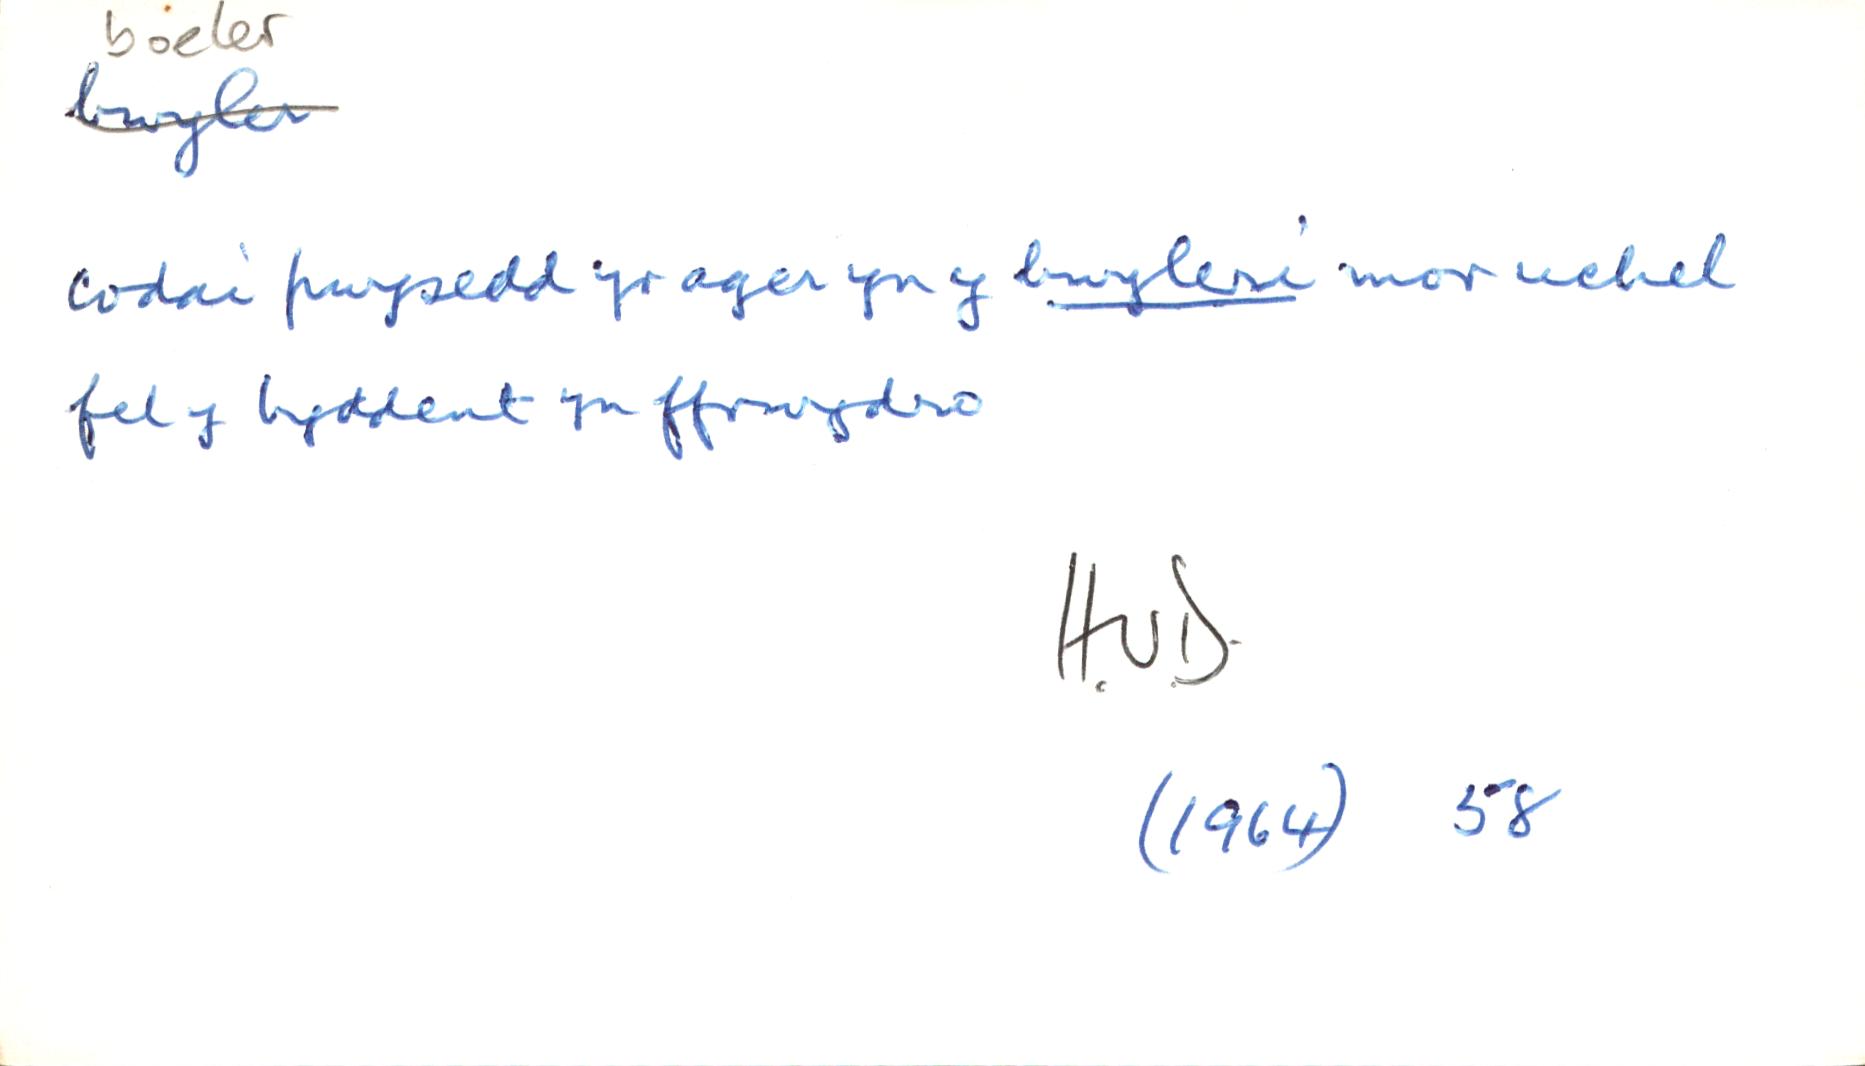 boeler
bwyler
codai pwysedd yr ager yn y bwyleri mor uchel
fel y byddent yn ffrwydro
H.U.D.
(1964) 58